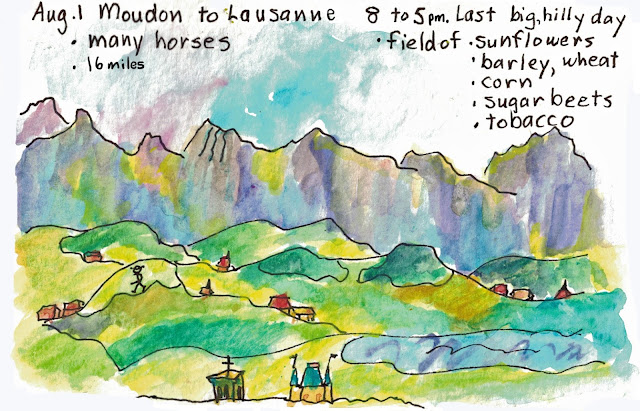 Aug. 1 Moudon to Lausanne 8 to 5pm. Last big, hilly day
• many horses
• 16 miles
• field of • sunflowers
• barley, wheat
• corn
• sugar beets
• tobacco